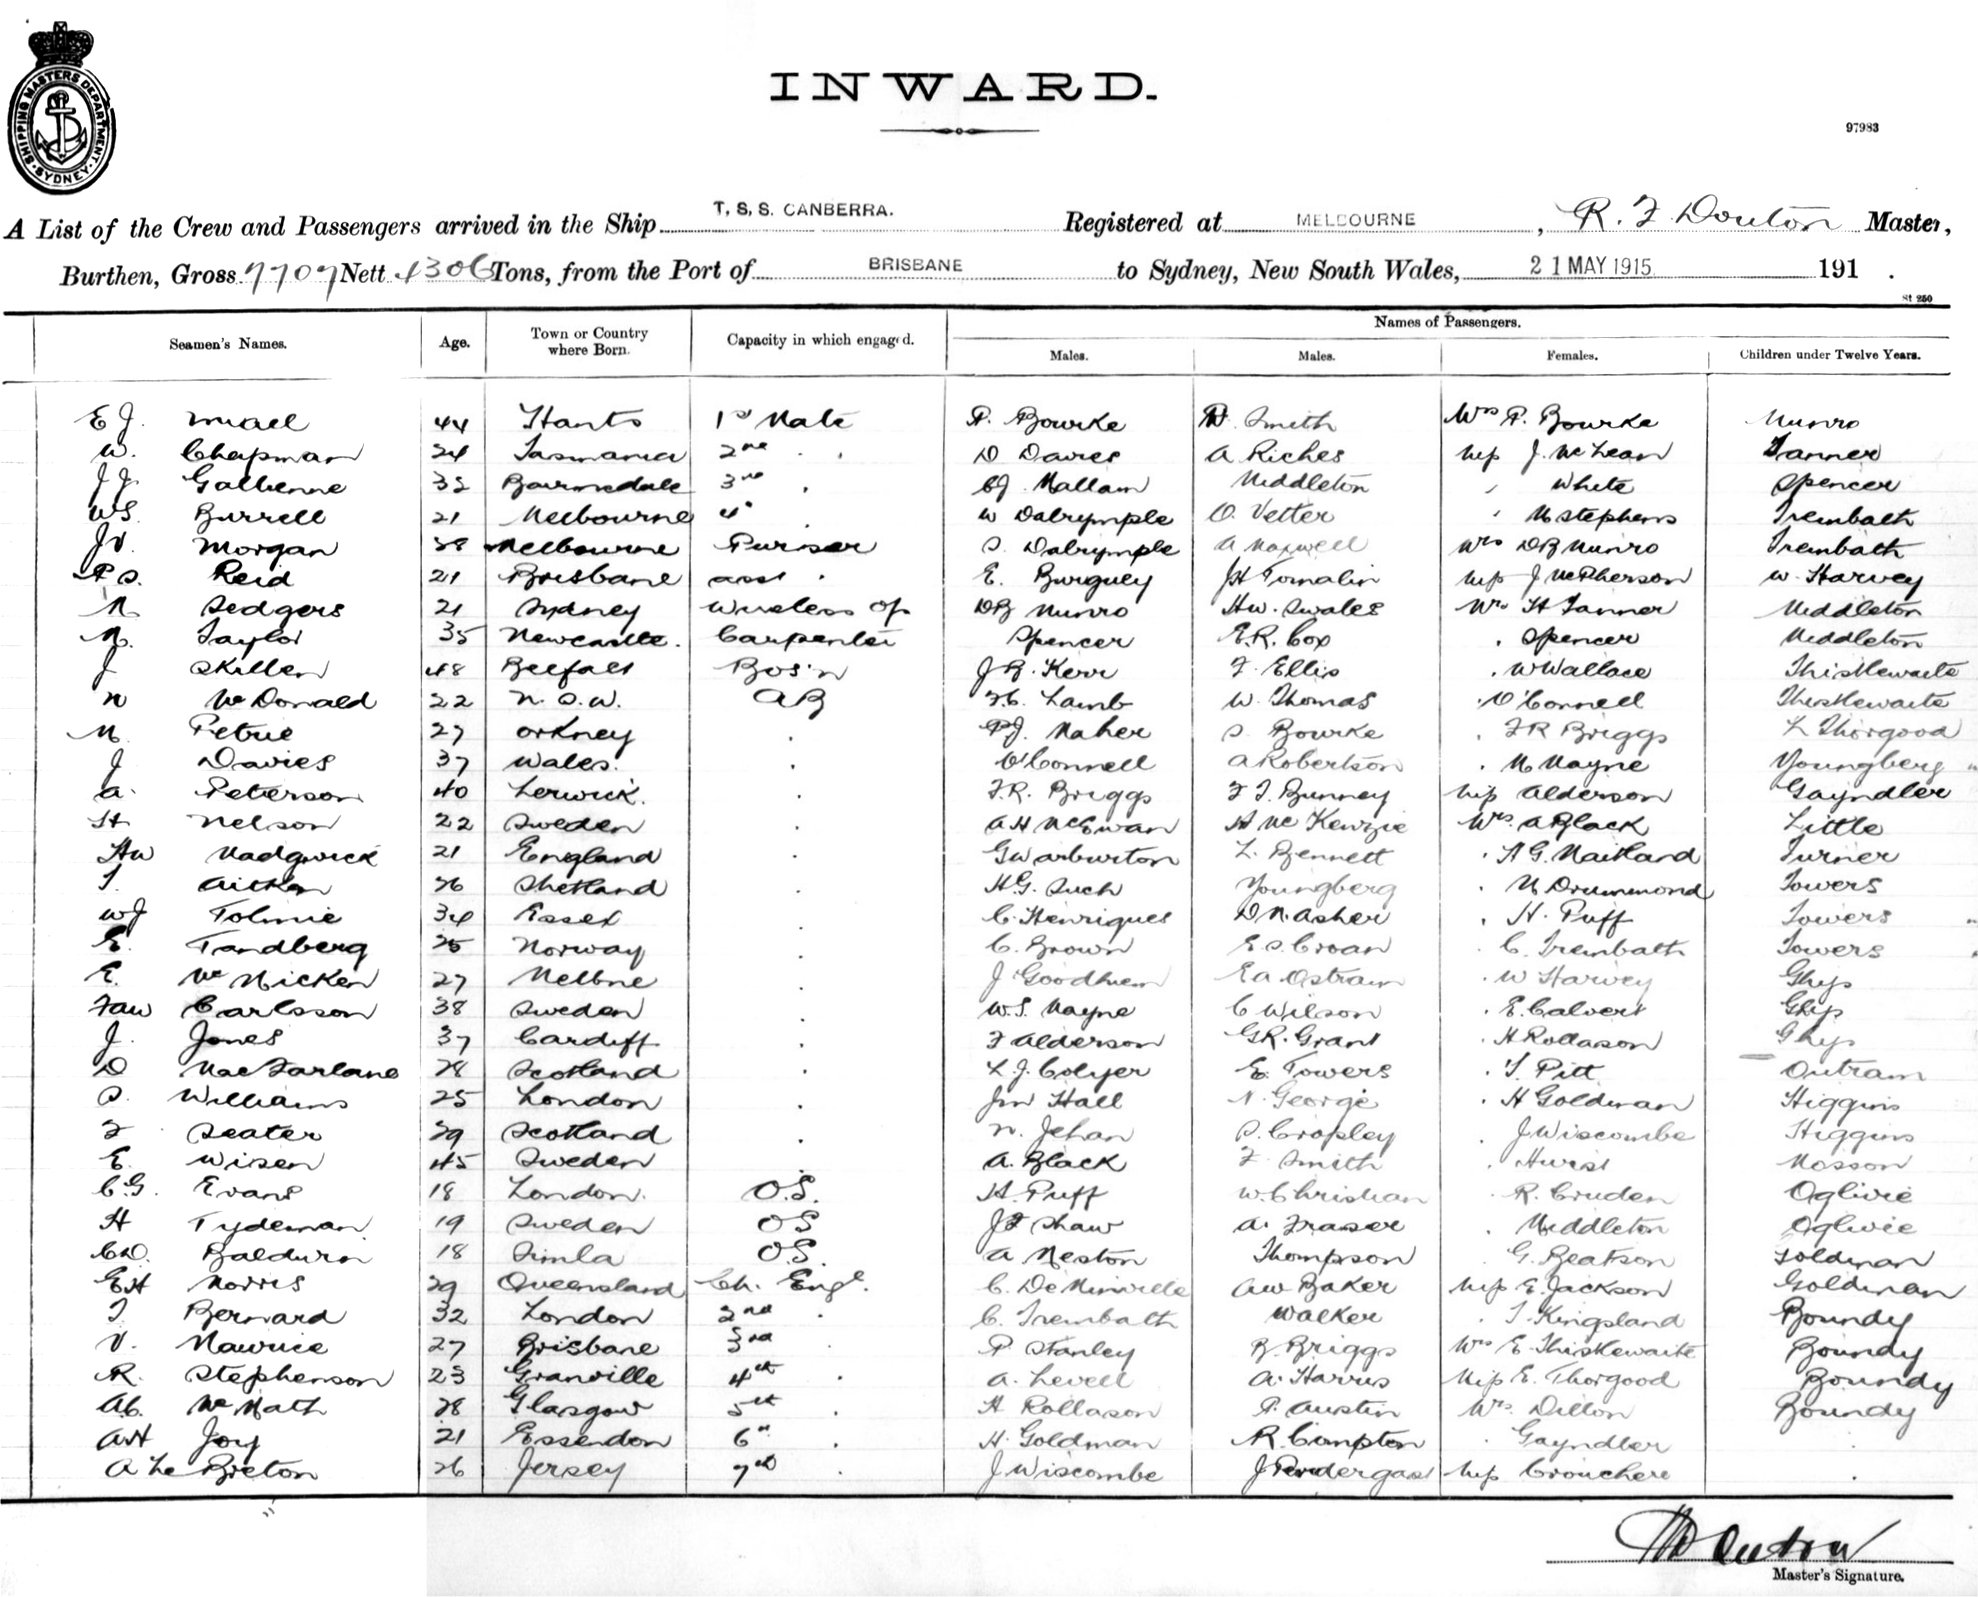 SHIPPING MASTERS DEPARTMENT
SYDNEY
INWARD.
97983
A List of the Crew and Passengers arrived in the Ship T. S. S. CANBERRA. Registered at MELBOURNE, R. F Douton Master,
Burthen, Gross 7707 Nett 4306 Tons, from the Port of BRISBANE to Sydney, New South Wales, 21 MAY 1915 191 .
St 250
Names of Passengers.
Seamen's Names. Age. Town or Country where Born. Capacity in which engaged. Males. Males. Females. Children under Twelve Years.
E J. 44 Hants 1st Mate P. Bourke Smith Mrs P. Bourke Munro
W. Chapman 24 Tasmania 2nd D Davies A Riches Miss J. McLean Tanner
J J. Galbenne 32 Bairnsdale 3rd Mallam Middleton White Spencer
WS. Burrell 21 Melbourne 4" W Dalrymple O. Vetter M Stephens Trembath
JV. Morgan 38 Melbourne Purser S. Dalrymple A Maxwell Mrs DB Munro Trembath
P S. Reid 21 Brisbane asst E. Burguey JH Tomalin Miss J McPherson W. Harvey
N Sedgers 21 Sydney Wireless Op DB Munro HW. Swales Mrs H Tanner Middleton
N. Taylor 35 Newcastle. Carpenter Spencer E.R. Cox Spencer Middleton
J Skillen 48 Belfast Bos'n J B. Kerr F Ellis W Wallace Thistlewaite
N McDonald 22 N. S. W. AB F.C. Lamb W. Thomas O'Connell Thistlewaite
M. Petrie 27 Orkney PJ. Maher S. Bourke FR Briggs L Thorgood
J Davies 37 Wales. O'Connell A Robertson M Mayne Youngberg
A. Peterson 40 Lerwick. F.R. Briggs F J. Bunney Miss Alderson Gayndler
H Nelson 22 Sweden AH McEwan H McKenzie Mrs. A Black Little
HW Madgwick 21 England G Warburton L. Bennett AG. Maitland Turner
T. Aitken 26 Shetland HG. Such Youngberg M Drummond Towers
WJ Tolmie 34 Essex C. Henriques DM. Asher H. Puff Towers
E. Tandberg 25 Norway C. Brown E S Croan C. Trembath Towers
E. McMicken 27 Melbne J Goodhiem EA Ostram W Harvey Ghys
FAW Carlsson 38 Sweden W.S. Mayne C Wilson E. Calvert Ghys
J. Jones 37 Cardiff F Alderson GR. Grant H Rollason Ghys
D MacFarlane 28 Scotland L. J. Colyer E. Towers T. Pitt Outram
S. Williams 25 London JW Hall N. George H Goldman Higgins
F Seater 29 Scotland N. Jehan S. Cropley J Wiscombe Higgins
E. Wisen 45 Sweden A. Black F. Smith Hurst Mosson
C.G. Evans 18 London. O.S. H. Puff W. Christian R. Cruden Oglivie
H Tydeman 19 Sweden OS JF Shaw A. Fraser Middleton Oglivie
CD. Baldwin 18 Simla OS. A Meston Thompson G. Beatson Goldman
EH Norris 29 Queensland Ch. Engr. C. DeMinville AW Baker Miss E. Jackson Goldman
T. Bernard 32 London 2nd C. Trembath Walker T. Kingsland Boundy
V. Maurice 27 Brisbane 3rd P Stanley B. Briggs Mrs E. Thistlewaite Boundy
R. Stephenson 23 Granville 4th A. Levell A. Harris Miss E. Thorgood Boundy
AC. McMath 28 Glasgow 5th H Rollason P. Austin Mrs. Dillon Boundy
AH Joy 21 Essendon 6th H. Goldman R. Compton Gayndler
A Le Breton 26 Jersey 7th J Wiscombe J Pendergast Miss Crouchere
Master's Signature.